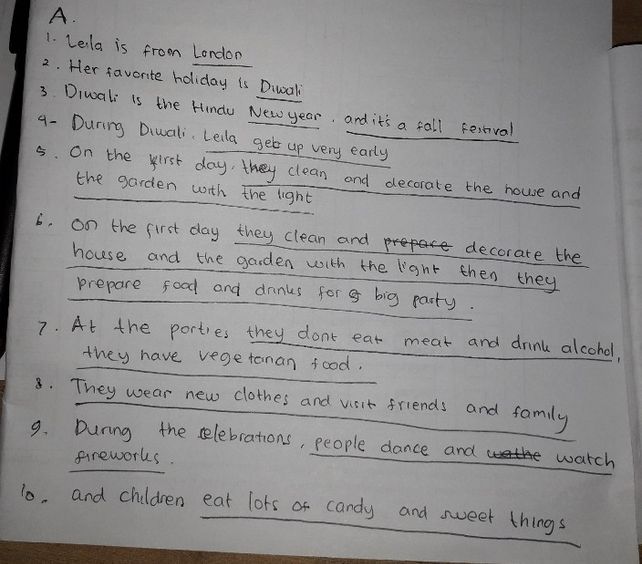 A.
1. Leila is from London
2. Her favorite holiday is Diwali
3. Diwali is the Hindu New year, and it's a fall festival
4- During Diwali, Leila gets up very early
5. On the first day, they clean and decorate the house and
the garden with the light
6. On the first day they clean and prepare decorate the
house and the garden with the light then they
prepare food and drinks for a big party.
7. At the parties they dont eat meat and drink alcohol,
they have vegetarian food.
8. They wear new clothes and visit friends and family
9. During the celebrations, people dance and wathe watch
fireworks.
10. and children eat lots of candy and sweet things